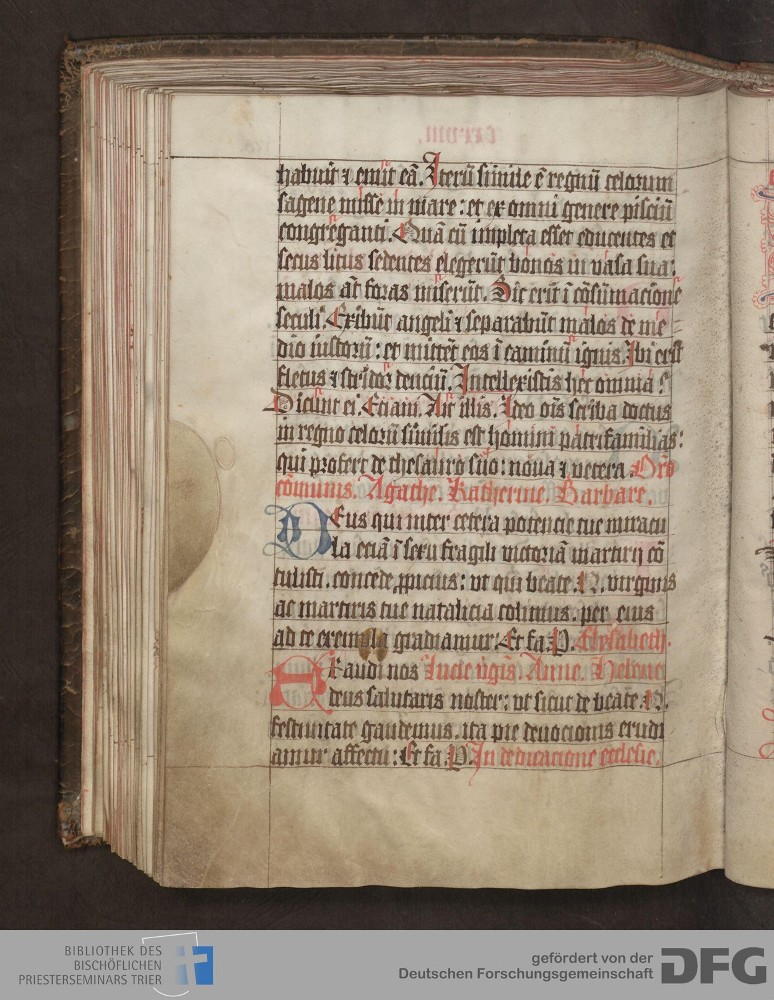 habuit ⁊ emit eā. Iterū simile ē regnū celorum
sagene misse in mare : et ex omni genere pisciū
congreganti. Quā cū impleta esset educentes et
secus litus sedentes elegerūt bonos in vasa sua:
malos aūt foras miserūt. Sic erit ī cōsūmacione
seculi. Exibūt angeli ⁊ separabūt malos de me=
dio iustorū : et mittēt eos ī caminū ignis. Ibi erit
fletus ⁊ stridor denciū. Intellexistis hec omnia?
Dicūnt ei. Eciam. Ait illis. Ideo oīs scriba doctus
in regno celorū similis est homini patrifamilias:
qui profert de thesauro suo : noua ⁊ vetera. Orō
cōmunis. Agathe. Katherine. Barbare.
DEus qui inter cetera potencie tue miracu
la eciā ī sexu fragili victoriā martirij cō
tulisti. concede ꝓpicius : vt qui beate .N. virginis
ac martiris tue natalicia colimus. per eius
ad te exempla gradiamur. Et fa. P. Elysabeth.
EXaudi nos Lucie vgīs Anne. Helene
deus salutaris noster : vt sicut de beate .N.
festiuitate gaudemus. ita pie deuocionis erudi
amur affectu : Et fa. P. In dedicacione ecclesie.
BIBLIOTHEK DES
BISCHÖFLICHEN
PRIESTERSEMINARS TRIER
gefördert von der
Deutschen Forschungsgemeinschaft
DFG